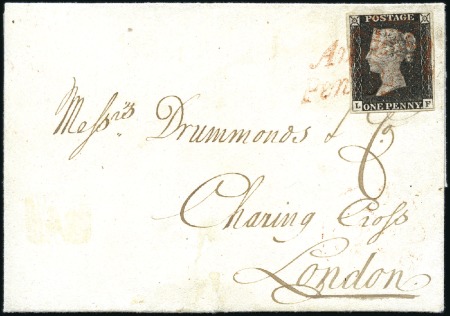 POSTAGE
L ONE PENNY F
Messrs Drummonds & Co
Charing Cross
London